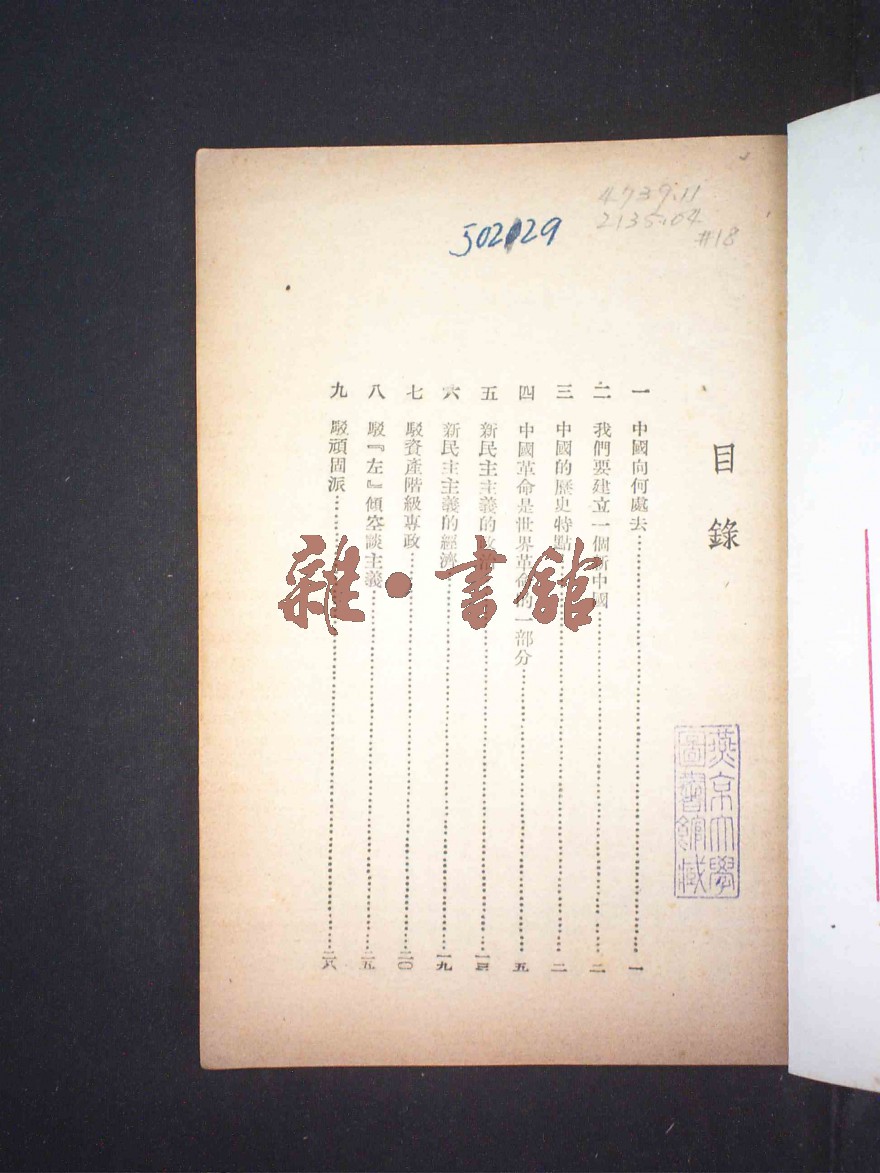 4739.11
2135.04
#18
502129
目錄
一 中國向何處去……一
二 我們要建立一個新中國……二
三 中國的歷史特點……二
四 中國革命是世界革命的一部分……五
五 新民主主義的政治……一三
六 新民主主義的經濟……一九
七 駁資產階級專政……二〇
八 駁『左』傾空談主義……二五
九 駁頑固派……二八
雜·書館
燕京大學
圖書館藏